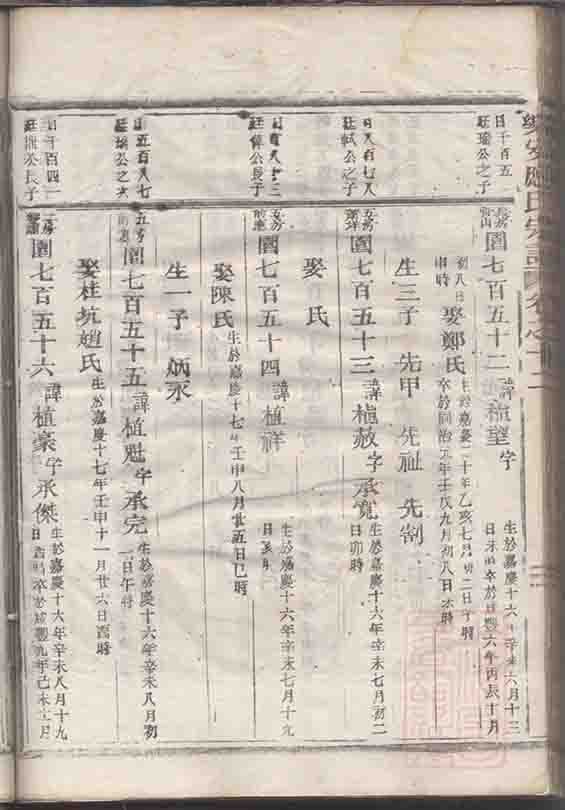 氏宗譜卷之十二
日千百五
廷瑜公之子
圍七百五十二 諱植望 字
生於嘉慶十六年辛未六月十三
日未時卒於咸豐六年丙辰十月
初八日
申時
娶鄭氏
生於嘉慶二十年乙亥七月初二日午時
卒於同治元年壬戌九月初八日未時
生三子 先甲 先祉 先
日八百七八
廷軾公之子
圍七百五十三 諱植赦 字承寬
生於嘉慶十六年辛未七月初二
日卯時
娶 氏
廷偉公長子
圍七百五十四 諱植祥
生於嘉慶十六年辛未七月十九
日亥時
娶陳氏
生於嘉慶十七年壬申八月廿五日巳時
生一子 炳永
日五百八七
廷瑞公之次
圍七百五十五 諱植魁 字承完
生於嘉慶十六年辛未八月初
一日午時
娶桂坑趙氏
生於嘉慶十七年壬申十一月廿六日酉時
日千百四一
公長子
圍七百五十六 諱植豪 字承傑
生於嘉慶十六年辛未八月十九
日酉時卒於咸豐九年己未十月